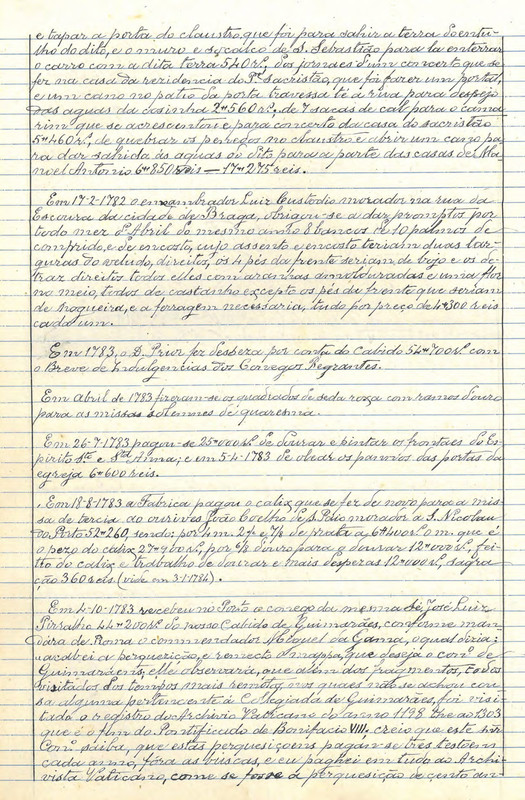 e tapar a porta do claustro, que foi para sahir a terra do entu-
lho do dito, e o muro e socalco de S. Sebastião para la enterrar
o carro com a dita terra 540 rs., dos jornaes d'um concerto que se
fez na casa da rezidencia do Pe. sacristão, que foi fazer um portal,
e um cano no patio da porta travessa té a rua para despejo
das aguas da cosinha 2"560 rs., de 7 sacas de cal para o cama
rim que se acrescentou e para concerto da casa do sacristão
5"460 rs., de quebrar os penedos no claustro e abrir um cano pa
ra dar sahida ás aguas do dito para a parte das casas de Ma-
noel Antonio 6"850 reis — 17"275 reis.
Em 17-2-1782 o ensamblador Luiz Custodio morador na rua da
Escoura da cidade de Braga, obrigou-se a dar promptos por
todo mez d'Abril do mesmo anno 8 bancos de 10 palmos de
comprido, e de encosto, cujo assento e encosto teriam duas lar-
guras do veludo, direitos, os 4 pés da frente seriam de bojo e os de
traz direitos, todos elles com aranhas amolduradas e uma flor
no meio, todos de castanho excepto os pés da frente que seriam
de nogueira, e a ferragem necessaria, tudo por preço de 4"300 reis
cada um.
Em 1783, o D. Prior fez despeza por conta do Cabido 54"700 rs. com
o Breve de Indulgencias dos Conegos Regrantes.
Em Abril de 1783 fizeram-se os quadrados de seda roxa com ramos d'ouro
para as missas solemnes de quaresma.
Em 26-7-1783 pagou-se 25"000 rs. de dourar e pintar os frontaes do Es-
pirito Sto. e Sta. Anna; e em 5-4-1783 de obrar os pannos das portas da
egreja 6"600 reis.
Em 18-8-1783 a Fabrica pagou o calix que se fez de novo para a mis-
sa de tercia ao ourives João Coelho de S. Paio morador a S. Nicolau
do Porto 52"260, sendo: por 4 m. 2 e 7/8 de prata a 6"400 rs. o m. que é
o pezo do calix 27"900 rs., por 7/8 d'ouro para o dourar 12"000 rs., fei-
tio do calix e trabalho de dourar e mais despezas 12"000 rs., sagra-
ção 360 reis. (vide em 3-1-1784).
Em 4-10-1783 recebeu no Porto o conego da mesma Sé, José Luiz
44"200 rs. do nosso Cabido de Guimarães, conforme man-
dara de Roma o commendador Miguel da Gama, o qual dizia:
"acabei a perquezição, e remeto o mapa, que deseja o con.º de
Guimarães; elle observará, que alem dos fragmentos, todos
visitados dos tempos mais remotos, nos quaes não se achou cou
sa alguma pertencente á Collegiada de Guimarães, foi visi-
tado o registro do Archivio Vaticano do anno 1198 the ao 1303
que é o fim do Pontificado de Bonifacio VIII. creio que este sr.
Con.º saiba, que estas perquesiçoens pagam-se tres testoens
cada anno, fora as buscas, e eu paguei em tudo ao Archi-
vista Vaticano, como se fosse a perquesição de cento an-